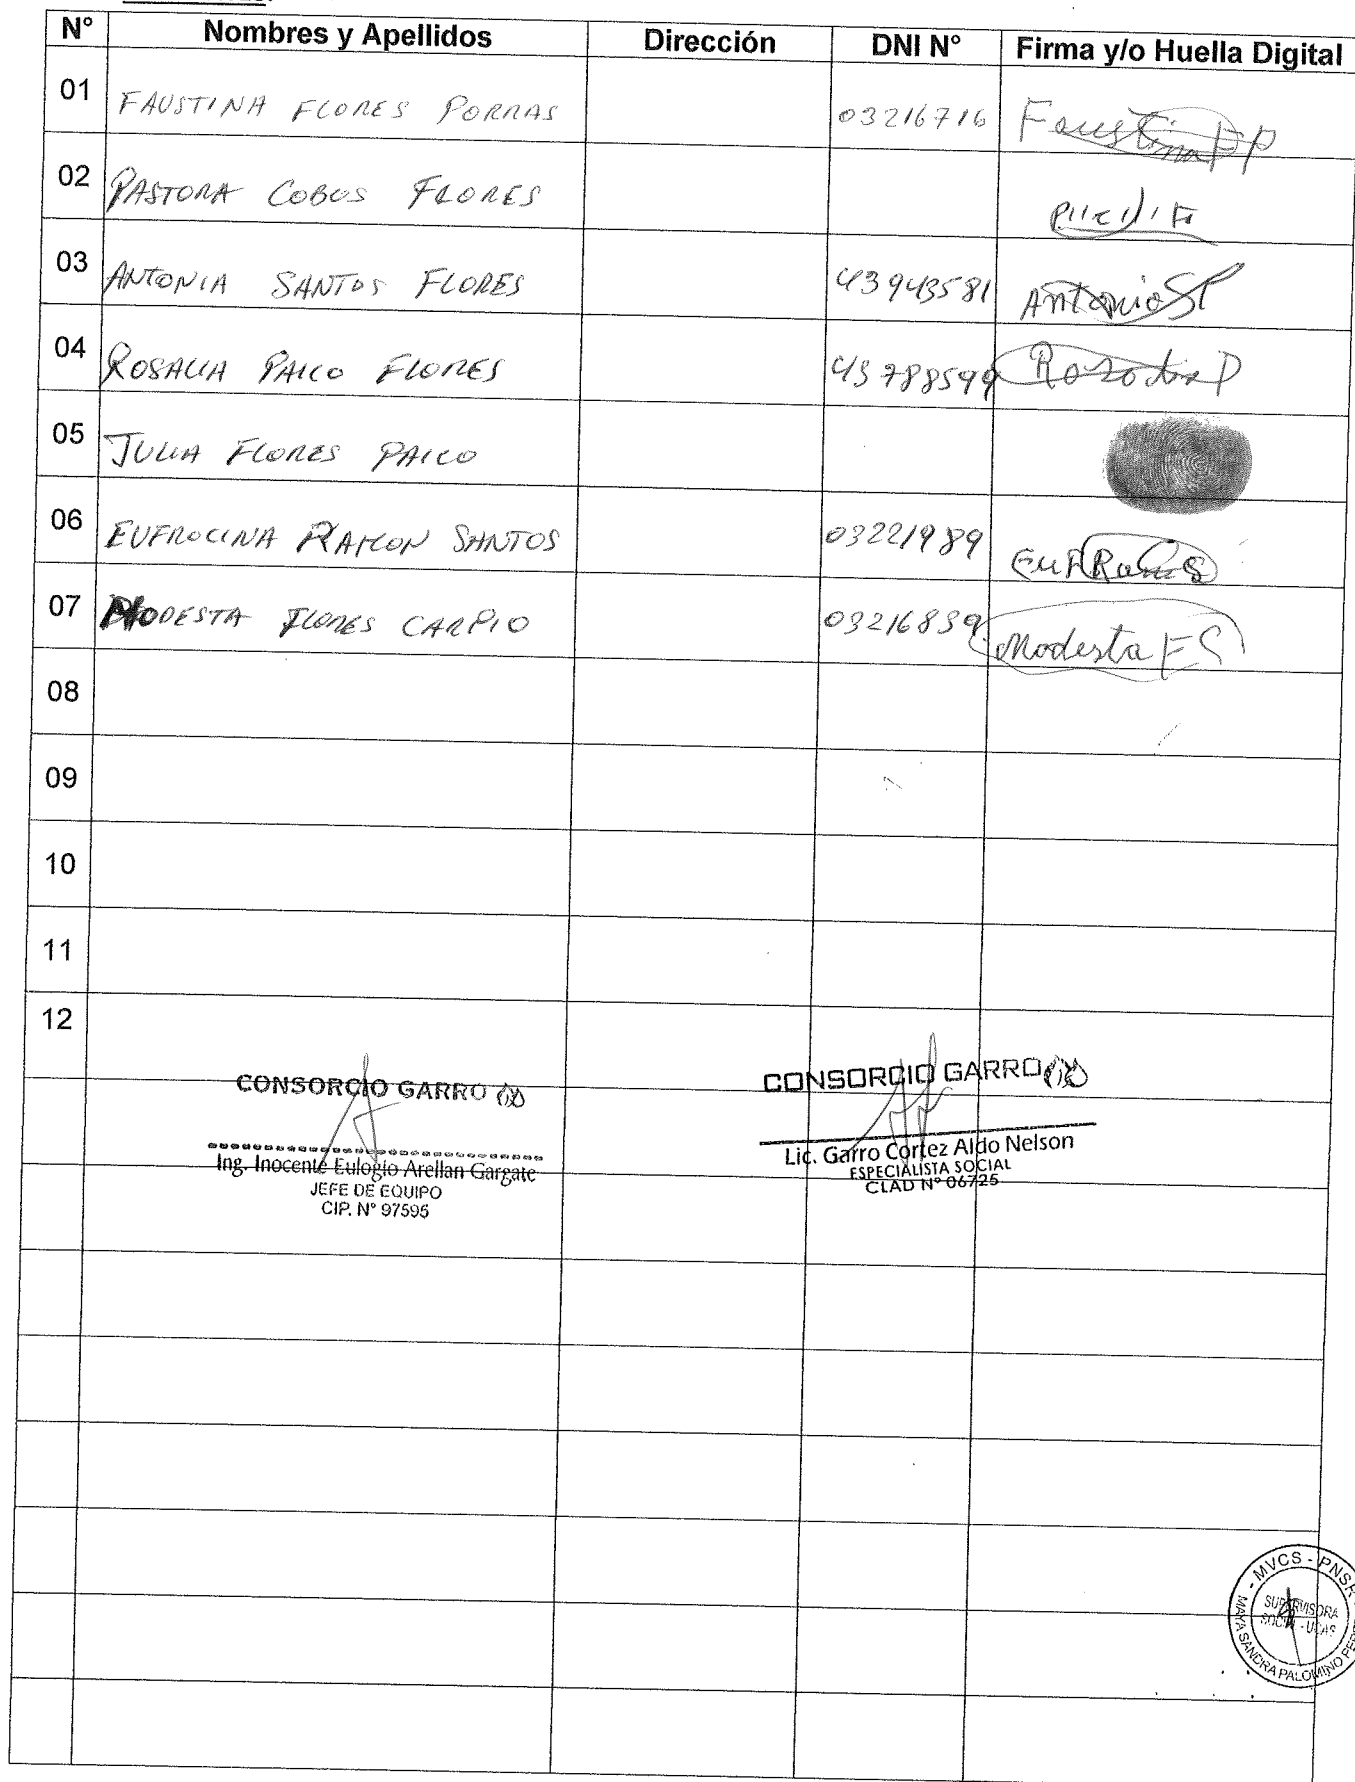 N° Nombres y Apellidos Dirección DNI N° Firma y/o Huella Digital
01 FAUSTINA FLORES PORRAS 03216716 Faustina FP
02 PASTORA COBOS FLORES
03 ANTONIA SANTOS FLORES 43943581 Antonia SF
04 ROSALIA PAICO FLORES 43788599
05 JULIA FLORES PAICO
06 EUFROCINA RAMON SANTOS 03221989
07 MODESTA FLORES CARPIO 03216839 Modesta FC
08
09
10
11
12
CONSORCIO GARRO
Ing. Inocente Eulogio Arellan Gargate
JEFE DE EQUIPO
CIP. N° 97595
CONSORCIO GARRO
Lic. Garro Cortez Aldo Nelson
ESPECIALISTA SOCIAL
CLAD N° 06725
- MVCS - PNSR
SUPERVISORA
SOCIAL - UCAS
MAYA SANDRA PALOMINO